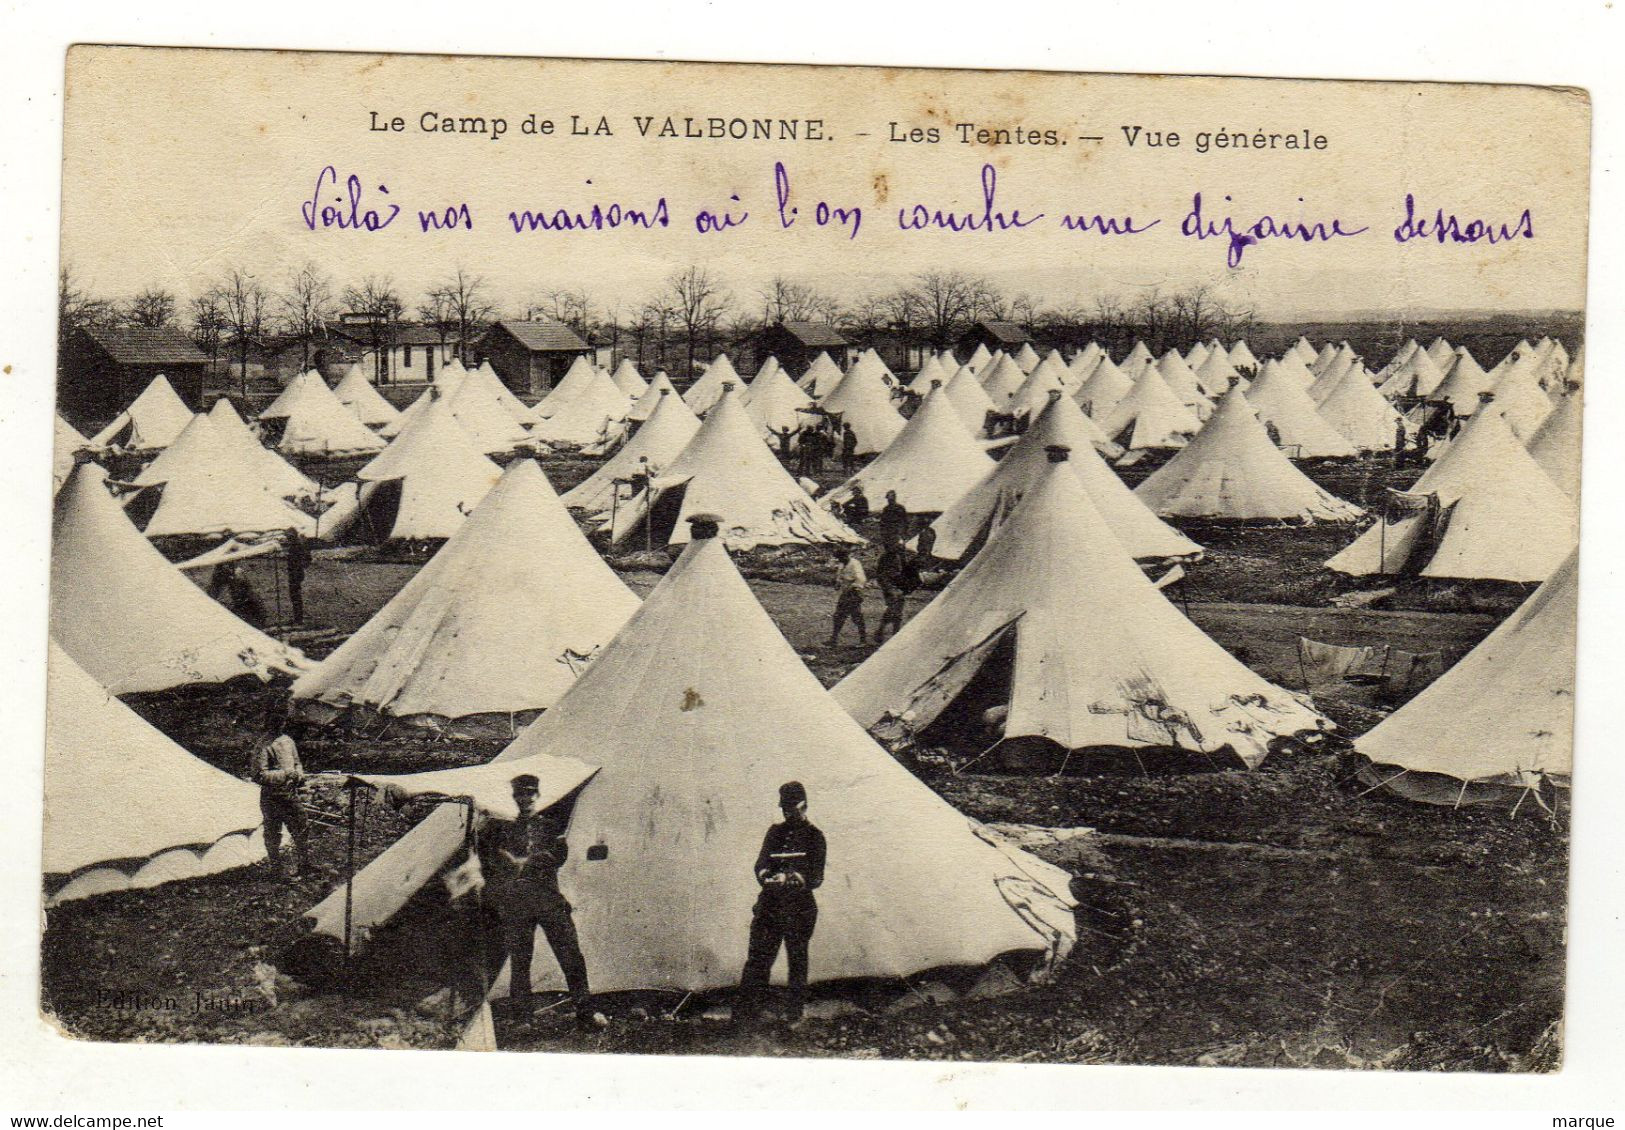 Le Camp de LA VALBONNE. - Les Tentes. — Vue générale
Voilà nos maisons où l'on couche une dizaine dessous
Edition Janin
www.delcampe.net
marque